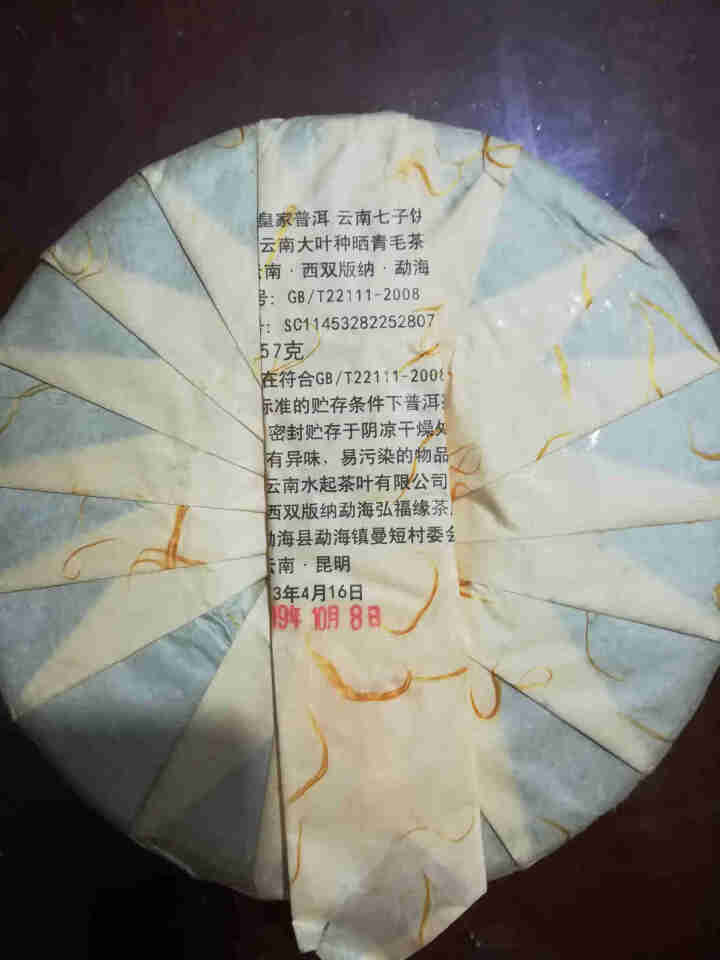 皇家普洱 云南七子饼
云南大叶种晒青毛茶
云南·西双版纳·勐海
号: GB/T22111-2008
: SC11453282252807
57克
在符合GB/T22111-2008
标准的贮存条件下普洱
密封贮存于阴凉干燥处
有异味、易污染的物品
云南水起茶叶有限公司
西双版纳勐海弘福缘茶
勐海县勐海镇曼短村委会
云南·昆明
3年4月16日
19年 10月 8日